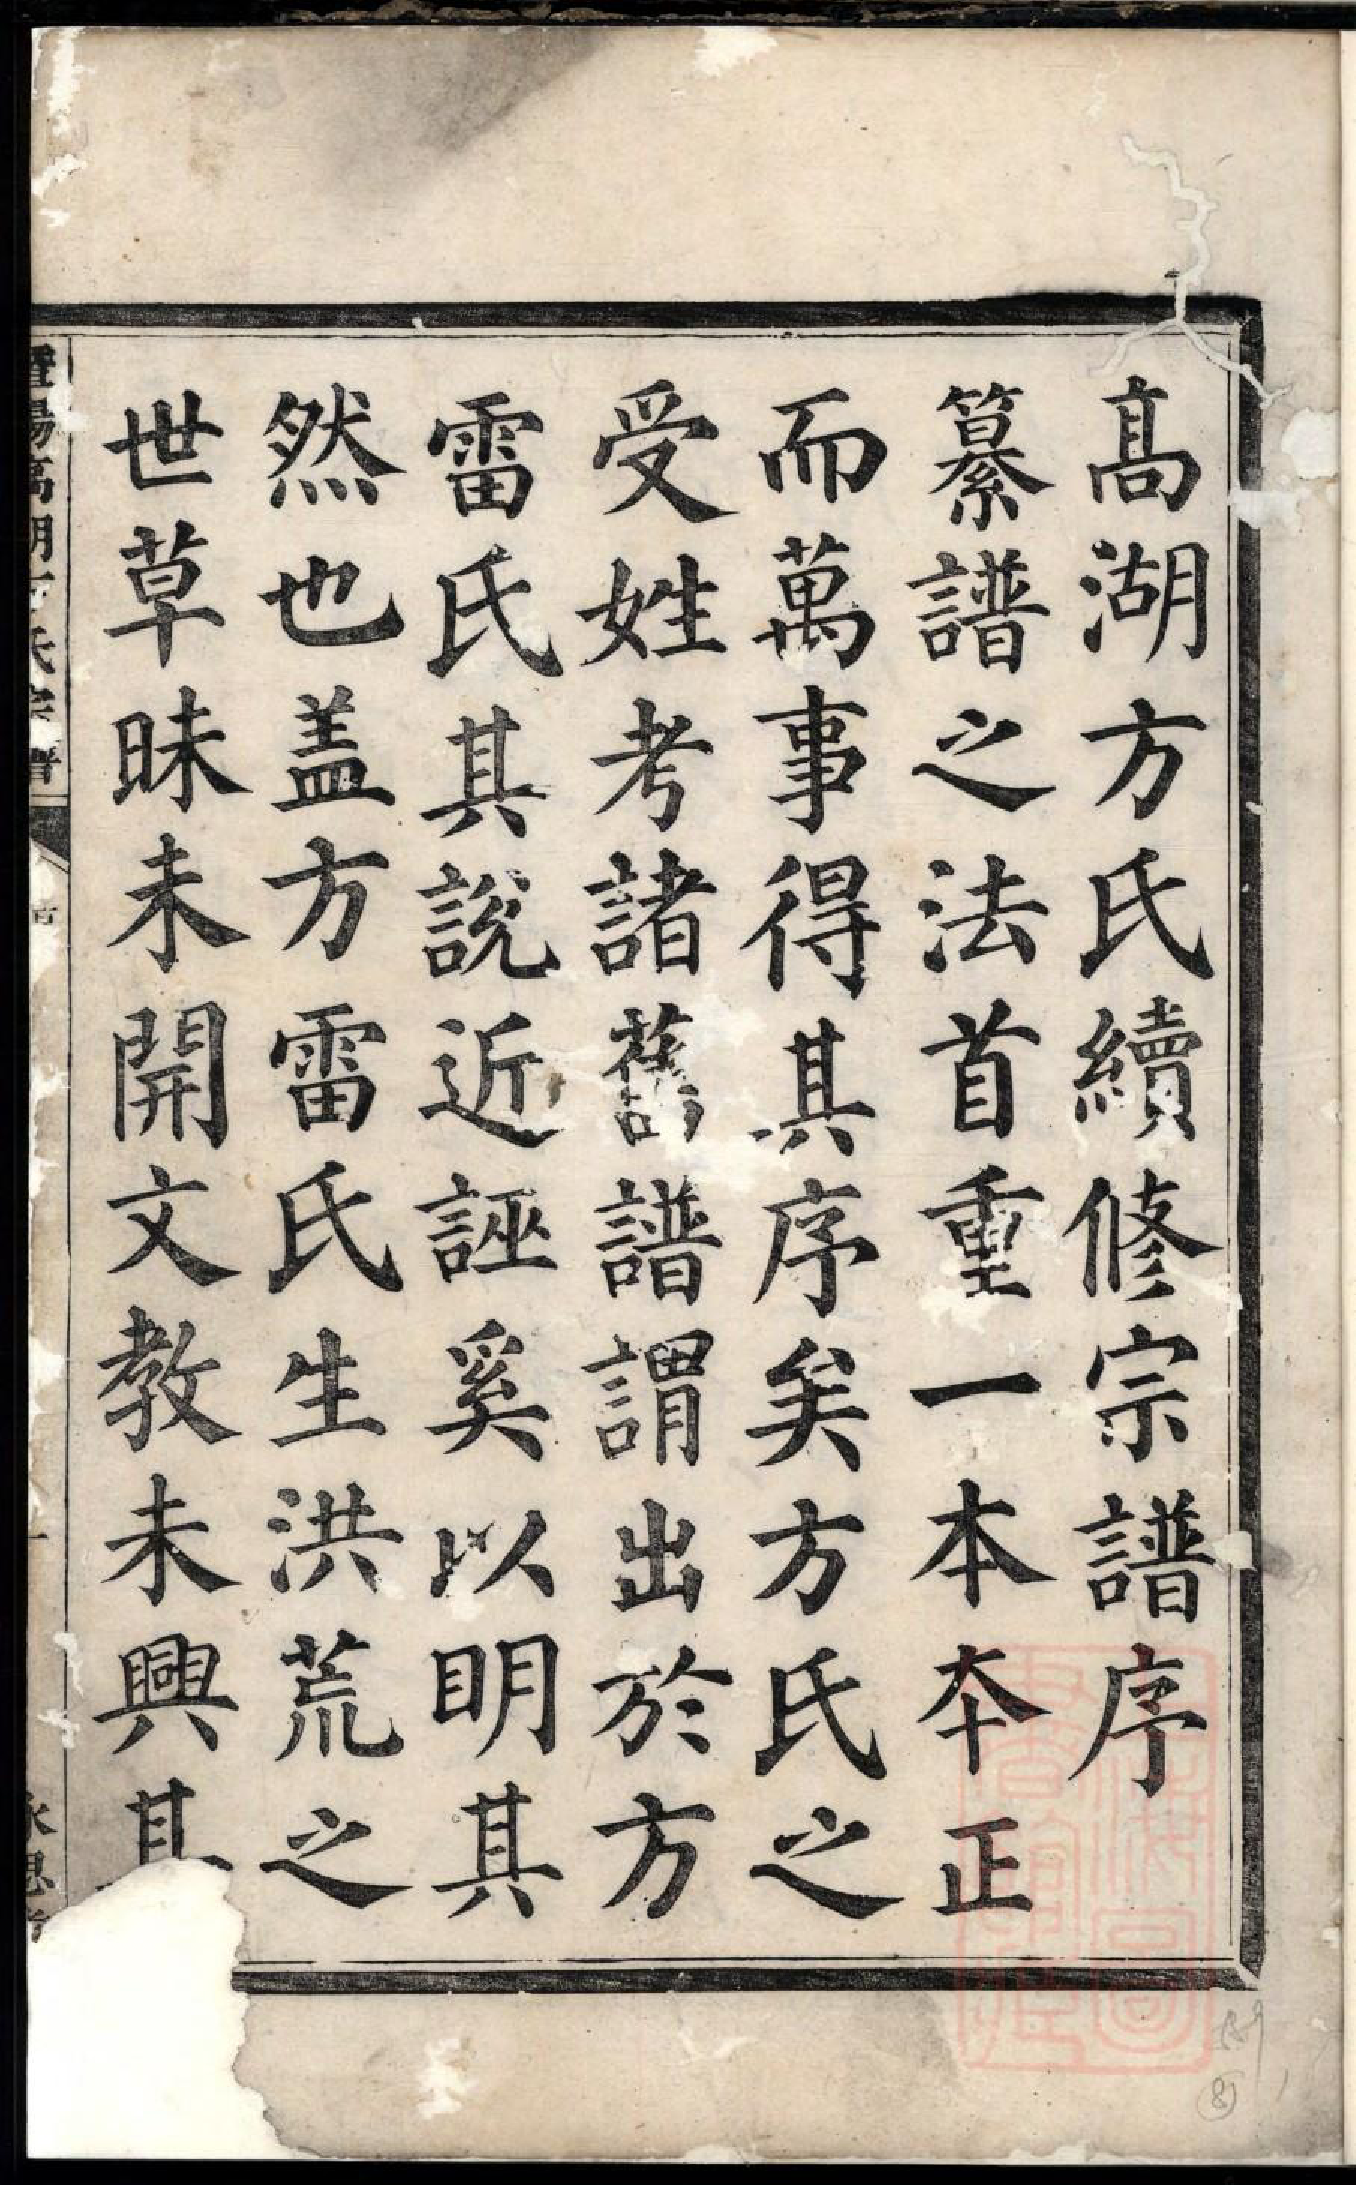 高湖方氏續修宗譜序
纂譜之法首重一本夲正
而萬事得其序矣方氏之
受姓考諸舊譜謂出於方
雷氏其說近誣奚以明其
然也盖方雷氏生洪荒之
世草昧未開文教未興其